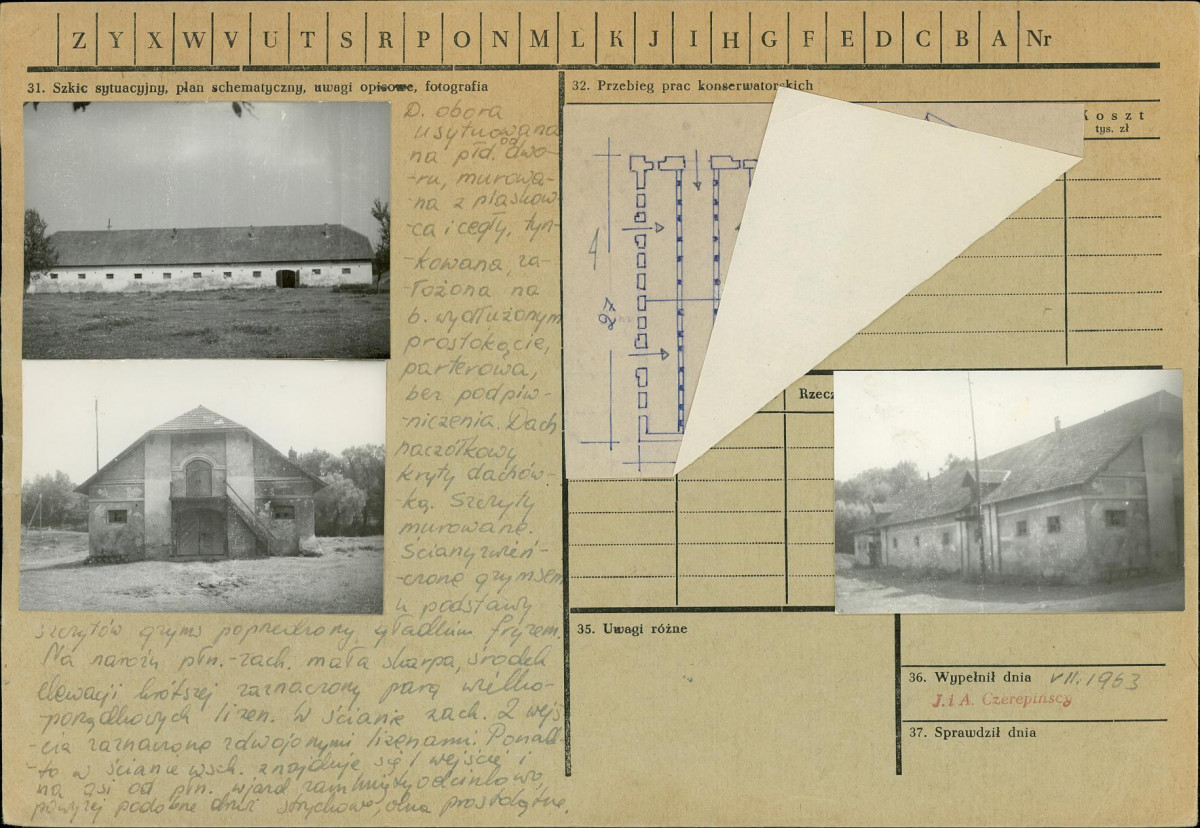 Z Y X W V U T S R P O N M L K J I H G F E D C B A Nr
31. Szkic sytuacyjny, plan schematyczny, uwagi opisowe, fotografia
D. obora
usytuowana
na płd. od dwo-
-ru, murowa-
-na z piaskow-
-ca i cegły, tyn-
-kowana, za-
-łożona na
b. wydłużonym
prostokącie,
parterowa,
bez podpiw-
-niczenia. Dach
naczółkowy
kryty dachów-
-ką. Szczyty
murowane.
Ściany zwień-
-czone gzymsem
u podstawy
szczytów gzyms poprzedzony gładkim fryzem.
Na narożu płn.-zach. mała skarpa, środek
elewacji krótszej zaznaczony parą wielko-
-porządkowych lizen. W ścianie zach. 2 wejś-
-cia zaznaczone zdwojonymi lizenami. Ponad-
-to w ścianie wsch. znajduje się 1 wejście i
na osi od płn. wjazd zamknięty odcinkowo,
powyżej podobne drzwi strychowe, okna prostokątne.
32. Przebieg prac konserwatorskich
Koszt
tys. zł
27
Rzecz
35. Uwagi różne
36. Wypełnił dnia VII.1963
J. i A. Czerepińscy
37. Sprawdził dnia